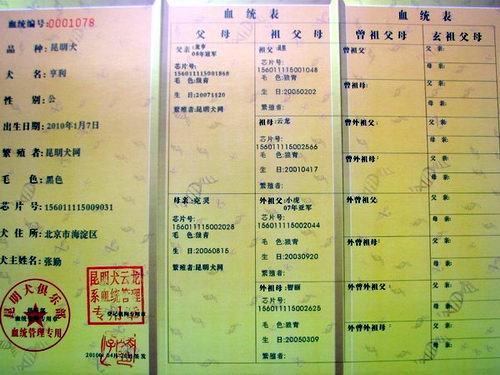 血统编号:0001078
品 种:昆明犬
犬 名:亨利
性 别:公
出生日期:2010年1月7日
繁殖者:昆明犬网
毛 色:黑色
芯片号:156011115009031
犬住所:北京市海淀区
犬主姓名:张勤
昆明犬云龙
系血统管理
专
昆明犬俱乐部
血统管理专用章
血统管理专用
2010年
血 统 表
父 母
祖 父 母
父亲:
08年冠军
芯片号:
156011115001868
毛 色:狼青
生 日:20071120
繁殖者:昆明犬网
母亲:克灵
芯片号:
156011115002028
毛 色:狼青
生 日:20060815
繁殖者:昆明犬网
祖父:
芯片号:
156011115001048
毛 色:狼青
生 日:20050202
繁殖者:
祖母:云龙
芯片号:
156011115002566
毛 色:狼青
生 日:20010417
繁殖者:
外祖父:小虎
07年亚军
芯片号:
156011115002044
毛 色:狼青
生 日:20030920
繁殖者:
外祖母:
芯片号:
156011115002625
毛 色:狼青
生 日:20050309
繁殖者:
血 统 表
曾祖父母
玄祖父母
曾祖父:
父亲:
母亲:
曾祖母:
父亲:
母亲:
曾外祖父:
父亲:
母亲:
曾外祖母:
父亲:
母亲:
外曾祖父:
父亲:
母亲:
外曾祖母:
父亲:
母亲:
外曾外祖父:
父亲:
母亲:
外曾外祖母:
父亲:
母亲: